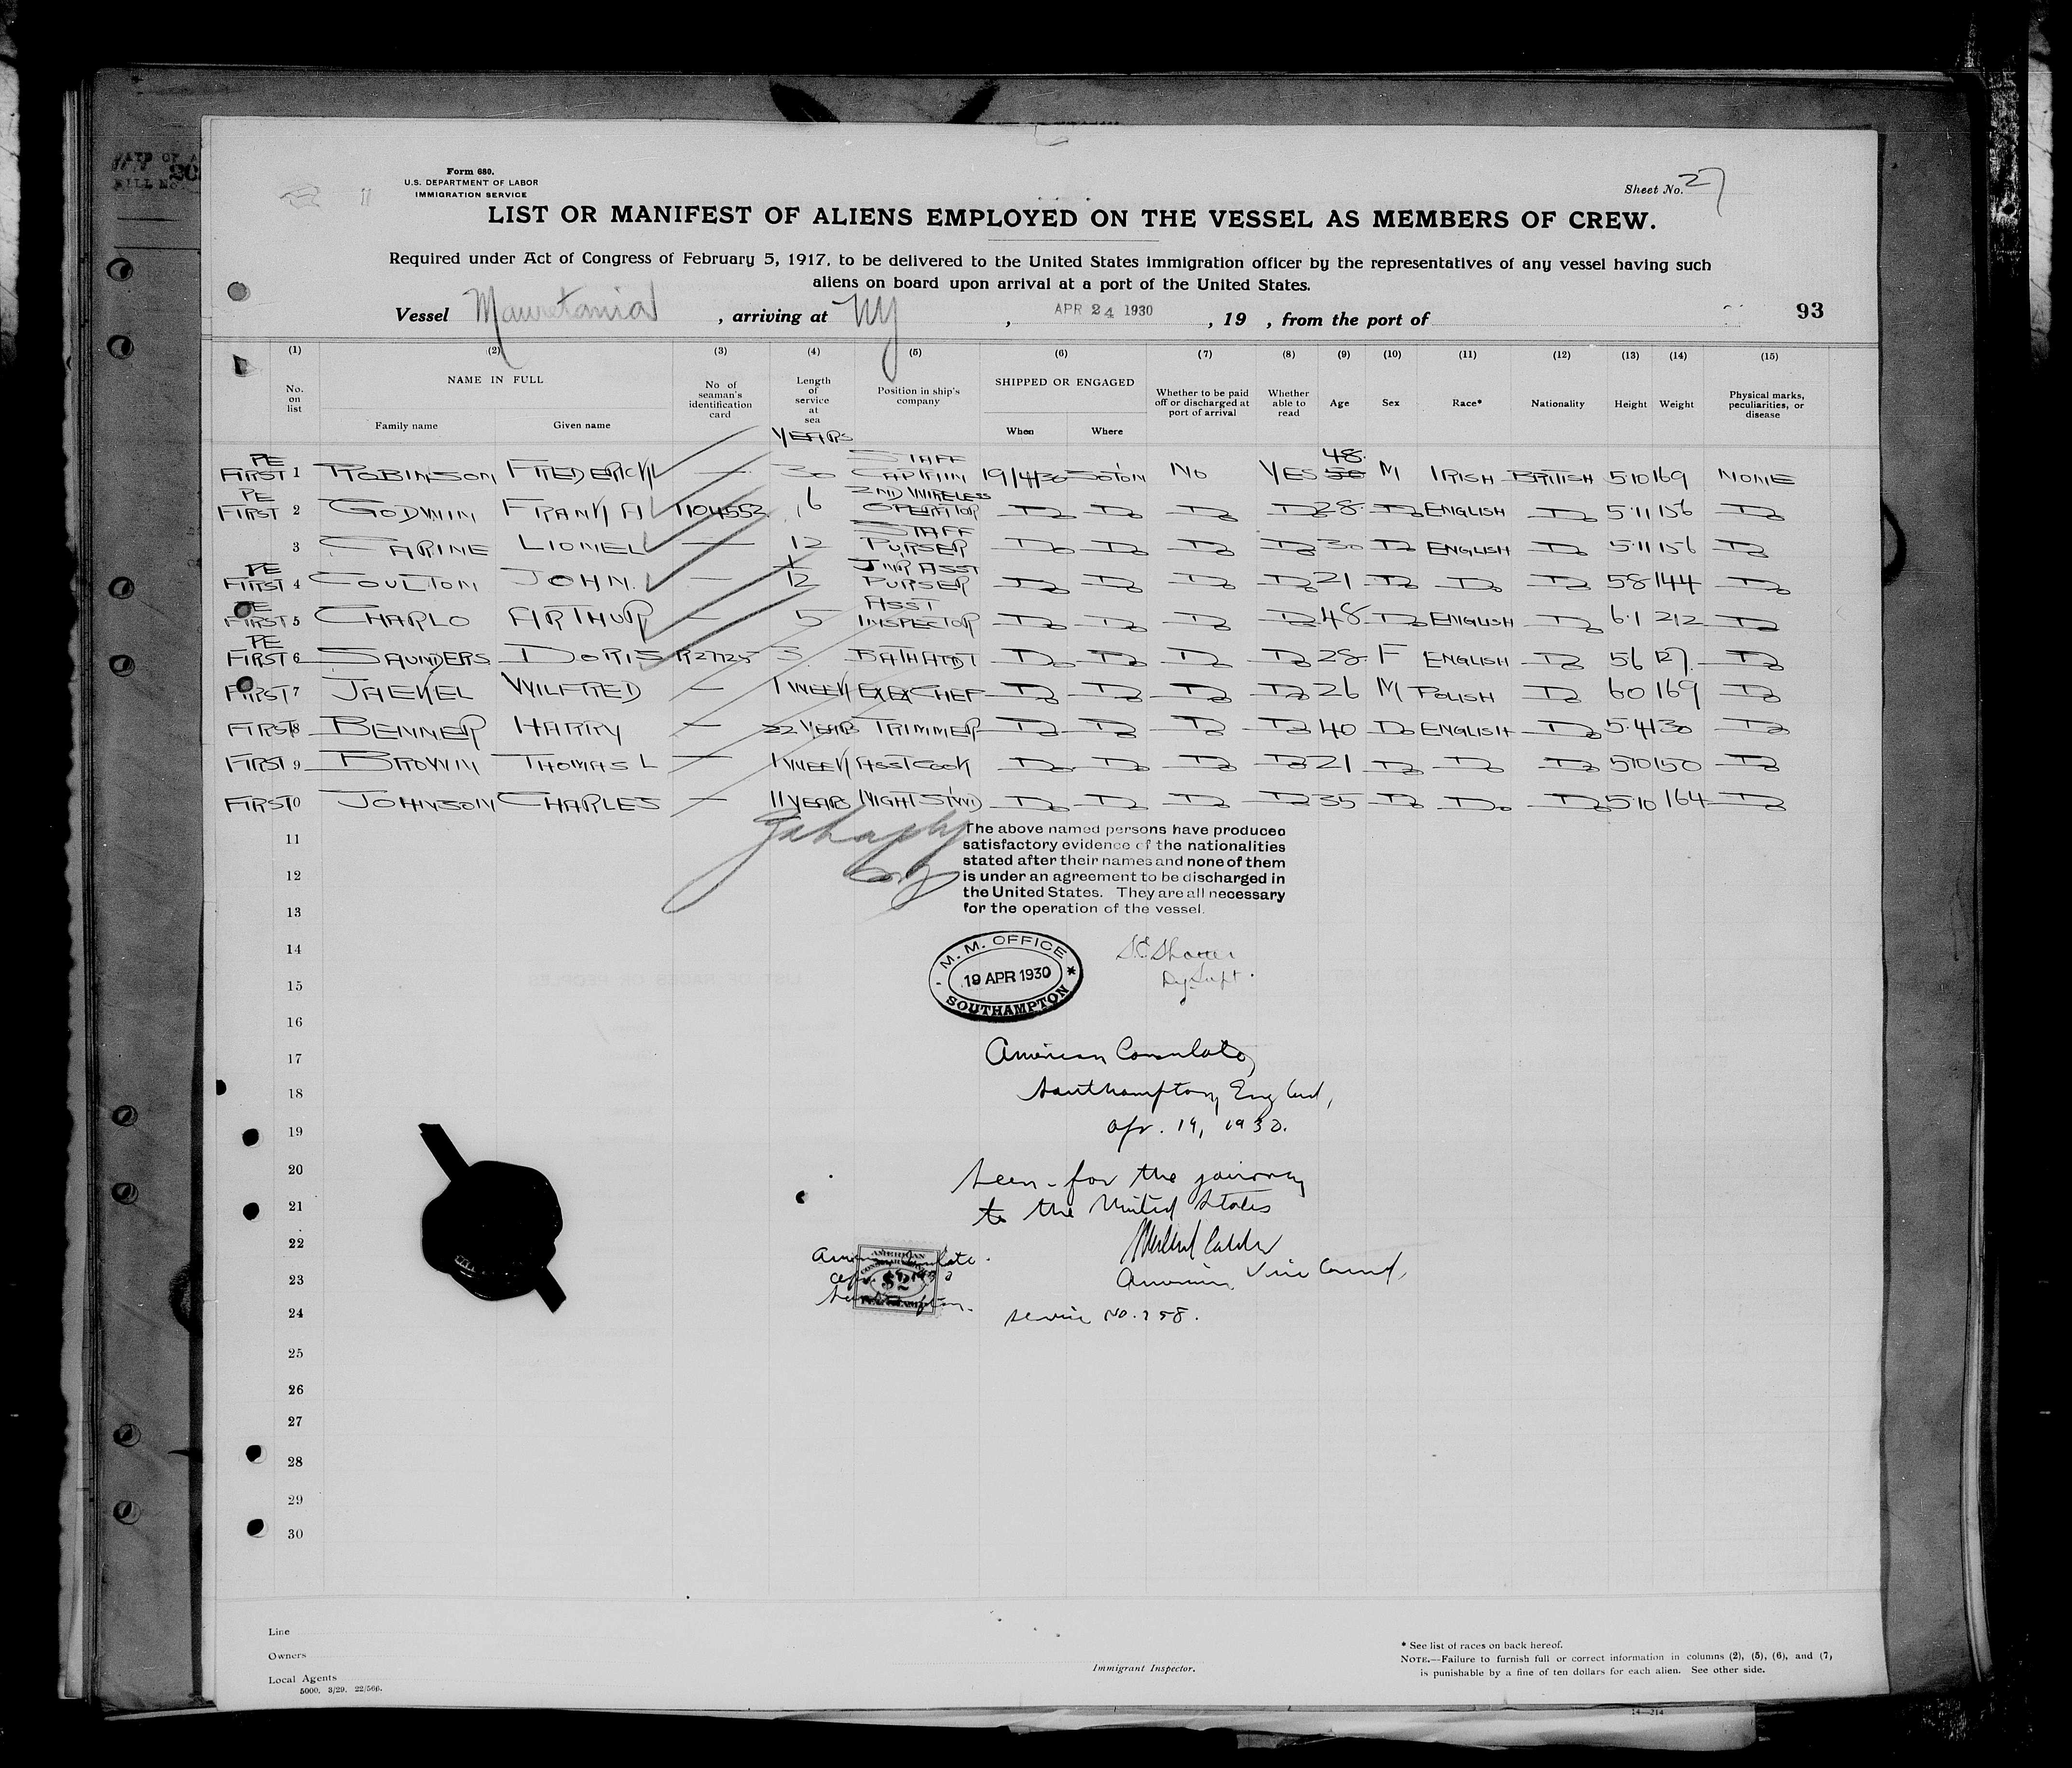 Form 680.
U.S. DEPARTMENT OF LABOR
IMMIGRATION SERVICE
Sheet No. 27
LIST OR MANIFEST OF ALIENS EMPLOYED ON THE VESSEL AS MEMBERS OF CREW.
Required under Act of Congress of February 5, 1917, to be delivered to the United States immigration officer by the representatives of any vessel having such
aliens on board upon arrival at a port of the United States.
Vessel Mauretania , arriving at NY , APR 24 1930 , 19 , from the port of 93
(1) (2) (3) (4) (5) (6) (7) (8) (9) (10) (11) (12) (13) (14) (15)
No. on list NAME IN FULL Family name Given name No of seaman's identification card Length of service at sea Position in ship's company SHIPPED OR ENGAGED When Where Whether to be paid off or discharged at port of arrival Whether able to read Age Sex Race* Nationality Height Weight Physical marks, peculiarities, or disease
YEARS
RE FIRST 1 ROBINSON FREDERICK — 30 STAFF CAPTAIN 19/4/30 SOTON NO YES 50 48. M IRISH BRITISH 5.10 169 NONE
RE FIRST 2 GODWIN FRANK A 1104552 6 2ND WIRELESS OPERATOR Do Do Do Do 28 Do ENGLISH Do 5.11 156 Do
3 CARINE LIONEL — 12 STAFF PURSER Do Do Do Do 30 Do ENGLISH Do 5.11 156 Do
RE FIRST 4 COULTON JOHN. — 1/12 JNR ASST PURSER Do Do Do Do 21 Do Do Do 5 8 144 Do
RE FIRST 5 CHARLO ARTHUR — 5 ASST INSPECTOR Do Do Do Do 48 Do ENGLISH Do 6.1 212 Do
RE FIRST 6 SAUNDERS DORIS R27725 3 BATH ATDT Do Do Do Do 28 F ENGLISH Do 5 6 127. Do
FIRST 7 JAEKEL WILFRED — 1 WEEK EX EX CHEF Do Do Do Do 26 M POLISH Do 6 0 169 Do
FIRST 8 BENNER HARRY — 22 YEARS TRIMMER Do Do Do Do 40 Do ENGLISH Do 5.4 130 Do
FIRST 9 BROWN THOMAS L — 1 WEEK ASST COOK Do Do Do Do 21 Do Do Do 5 10 150 Do
FIRST 10 JOHNSON CHARLES — 11 YEARS NIGHT STWD Do Do Do Do 35 Do Do Do 5.10 164 Do
11
The above named persons have produced
satisfactory evidence of the nationalities
stated after their names and none of them
12
is under an agreement to be discharged in
the United States. They are all necessary
13
for the operation of the vessel.
14
M. M. OFFICE
19 APR 1930
SOUTHAMPTON
Dy. Supt.
15
16
17
American Consulate
18
Southampton, England,
19
Apr. 19, 1930.
20
Seen for the journey
21
to the United States
22
American Consulate.
AMERICAN
23
American Vice Consul,
$2
24
Service No. 258.
25
26
27
28
29
30
Line
Owners
Local Agents
5000. 3/29. 22/566.
Immigrant Inspector.
* See list of races on back hereof.
NOTE.—Failure to furnish full or correct information in columns (2), (5), (6), and (7),
is punishable by a fine of ten dollars for each alien. See other side.
14—214